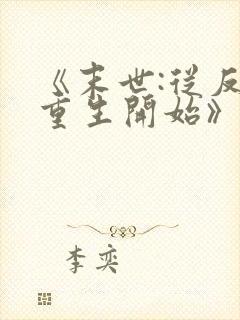 《末世:從反
重生開始》
李奕